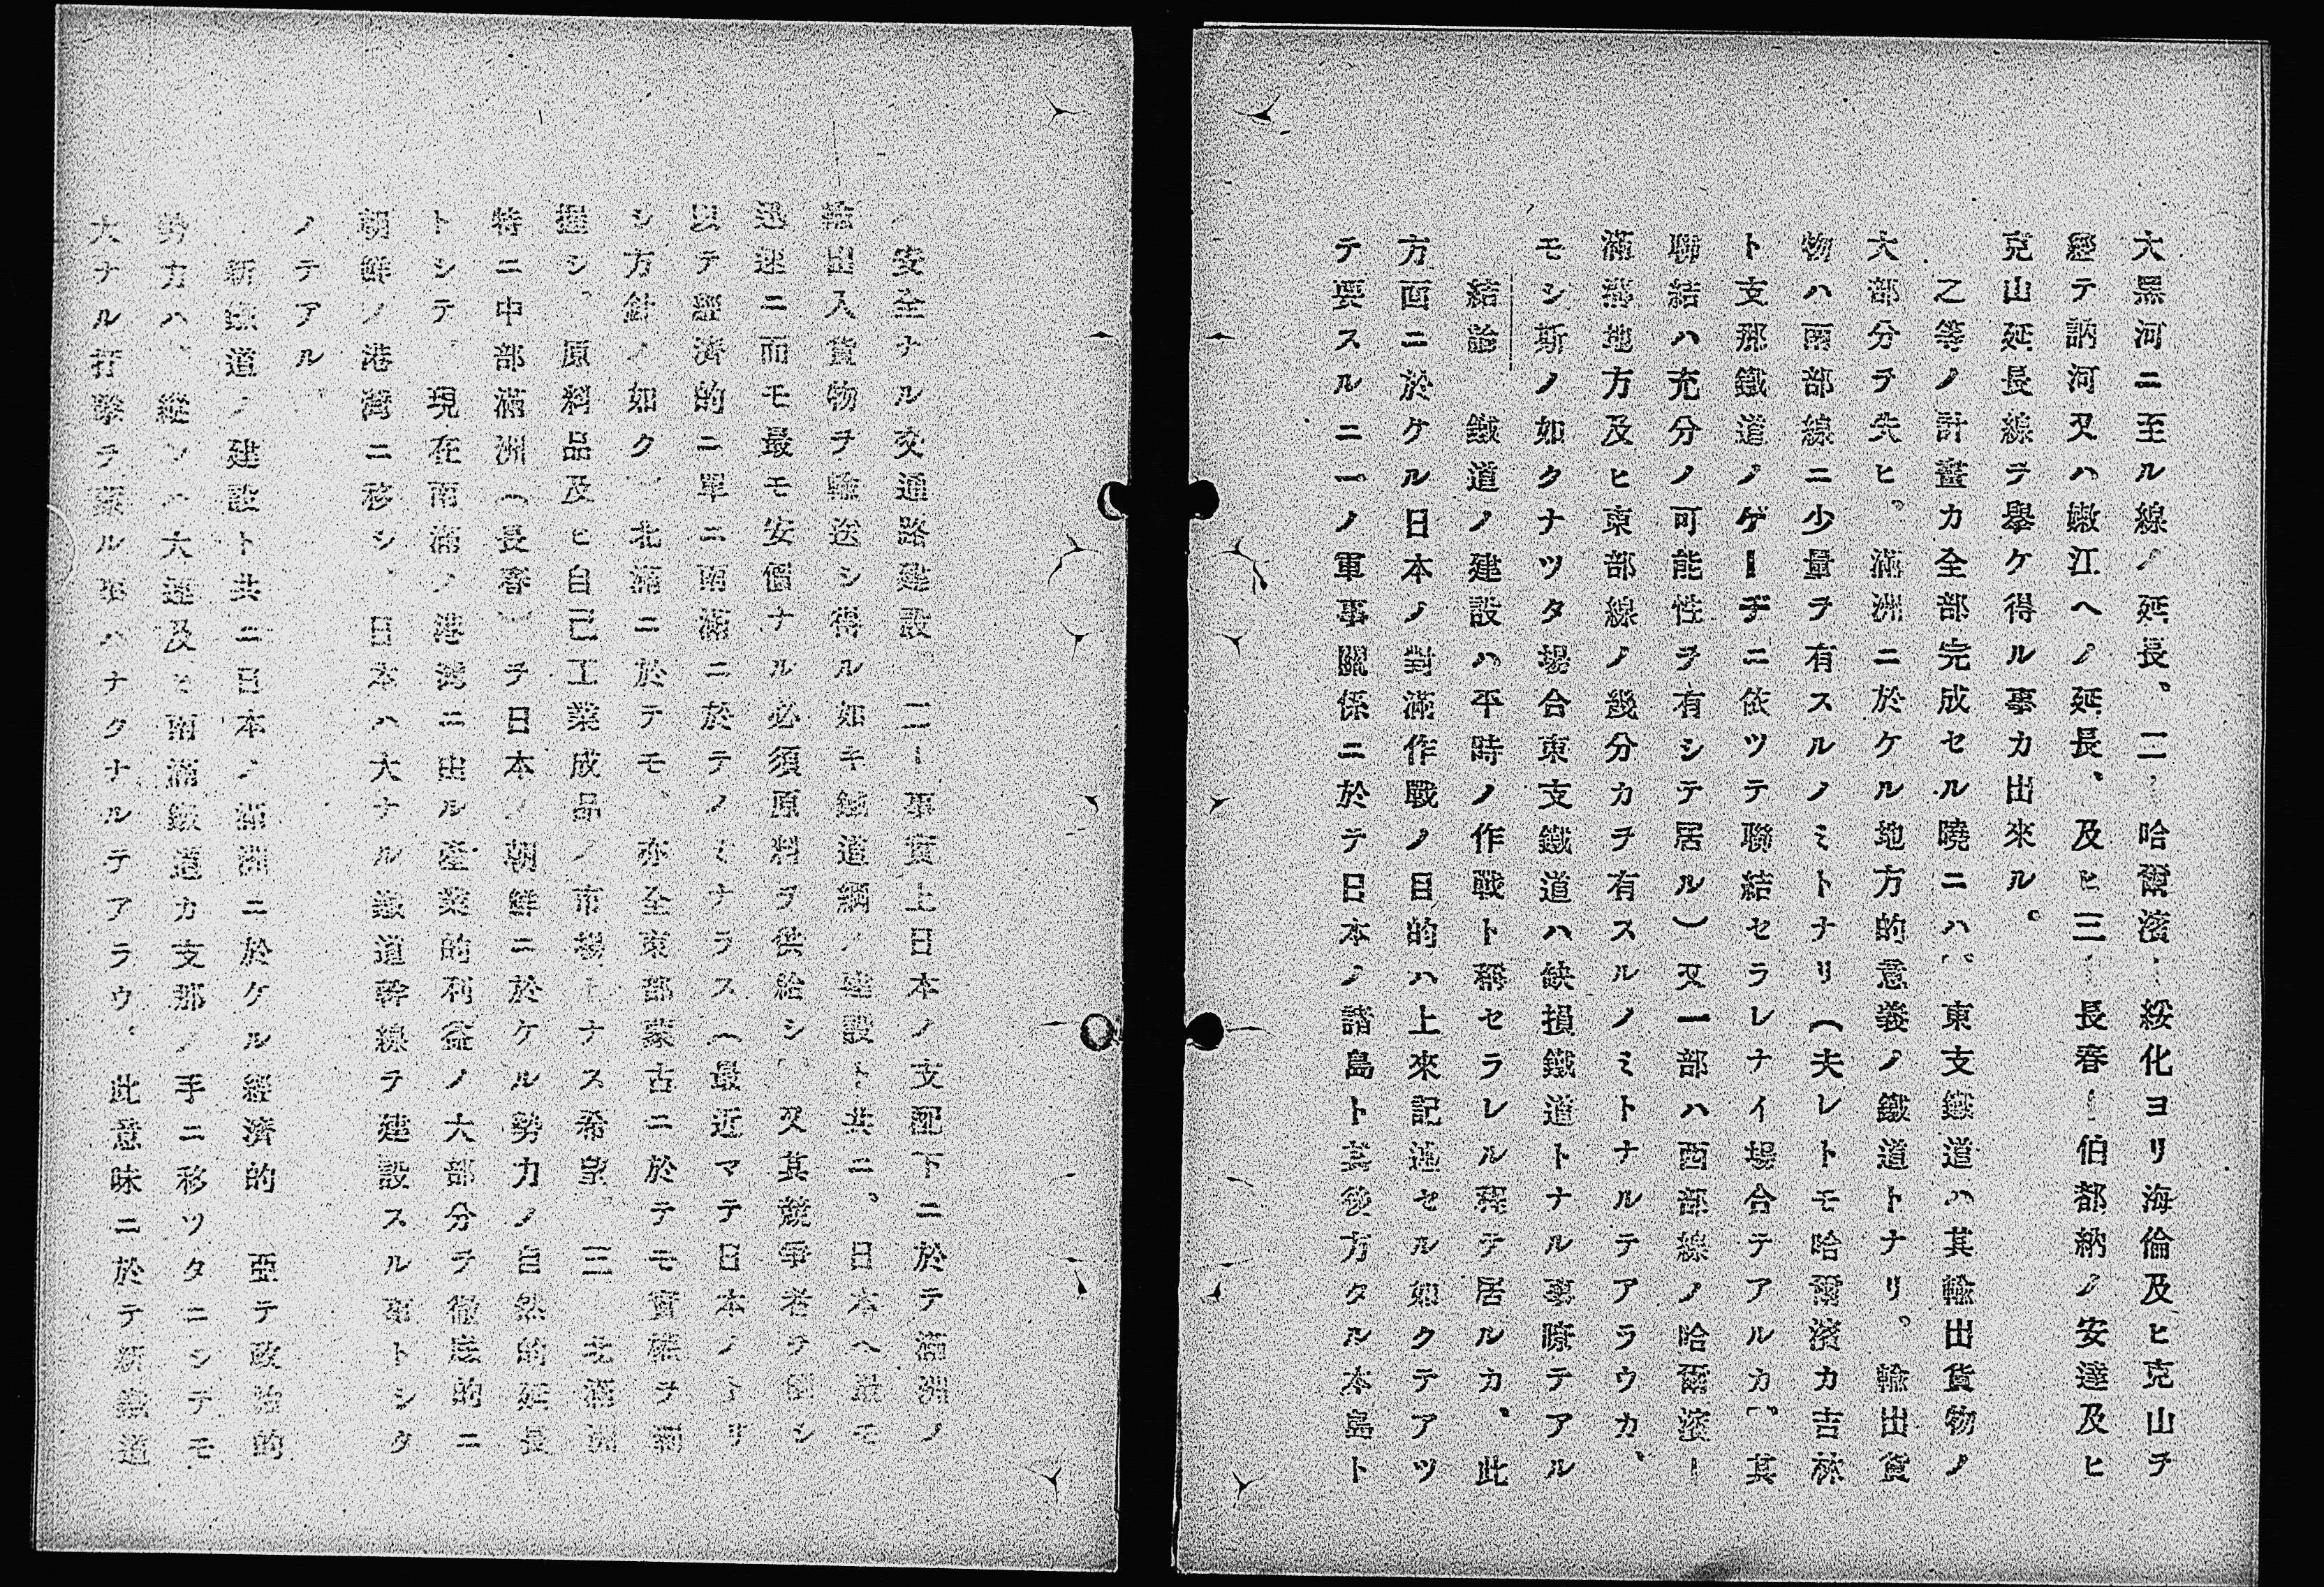 大黑河ニ至ル線ノ延長。二ー哈爾濱ー綏化ヨリ海倫及ヒ克山ヲ
經テ訥河又ハ嫩江ヘノ延長、及ヒ三ー長春ー伯都納ノ安達及ヒ
克山延長線ヲ擧ケ得ル事カ出來ル。
之等ノ計畫カ全部完成セル曉ニハ、東支鐵道ハ其輸出貨物ノ
大部分ヲ失ヒ。滿洲ニ於ケル地方的意義ノ鐵道トナリ。輸出貨
物ハ南部線ニ少量ヲ有スルノミトナリ(夫レトモ哈爾濱カ吉林
ト支那鐵道ノゲーヂニ依ツテ聯結セラレナイ場合テアルカ、其
聯結ハ充分ノ可能性ヲ有シテ居ル)又一部ハ西部線ノ哈爾濱ー
滿溝地方及ヒ東部線ノ幾分カヲ有スルノミトナルテアラウカ、
モシ斯ノ如クナツタ場合東支鐵道ハ缺損鐵道トナル事瞭テアル
結論 鐵道ノ建設ハ平時ノ作戰ト稱セラレル譯テ居ルカ、此
方面ニ於ケル日本ノ對滿作戰ノ目的ハ上來記述セル如クテアツ
テ要スルニ一ノ軍事關係ニ於テ日本ノ諸島ト其後方タル本島ト
安全ナル交通路建設 二ー事實上日本ノ支配下ニ於テ滿洲ノ
輸出入貨物ヲ輸送シ得ル如キ鐵道網ノ建設ト共ニ、日本ヘ最モ
迅速ニ而モ最モ安價ナル必須原料ヲ供給シ、又其競爭者ヲ倒シ
以テ經濟的ニ單ニ南滿ニ於テノミナラス(最近マテ日本ノトリ
シ方針ノ如ク)北滿ニ於テモ、亦全東部蒙古ニ於テモ實權ヲ掌
握シ、原料品及ヒ自己工業成品ノ市場トナス希望 三 北滿洲
特ニ中部滿洲(長春)ヲ日本ノ朝鮮ニ於ケル勢力ノ自然的延長
トシテ、現在南滿ノ港灣ニ由ル產業的利益ノ大部分ヲ徹底的ニ
朝鮮ノ港灣ニ移シ、日本ハ大ナル鐵道幹線ヲ建設スル事トシタ
ノテアル
新鐵道ノ建設ト共ニ日本ノ滿洲ニ於ケル經濟的 亞テ政治的
勢力ハ、縱ツハ大連及ヒ南滿鐵道カ支那ノ手ニ移ツタニシテモ
大ナル打擊ヲ蒙ル事ハナクナルテアラウ、此意味ニ於テ新鐵道